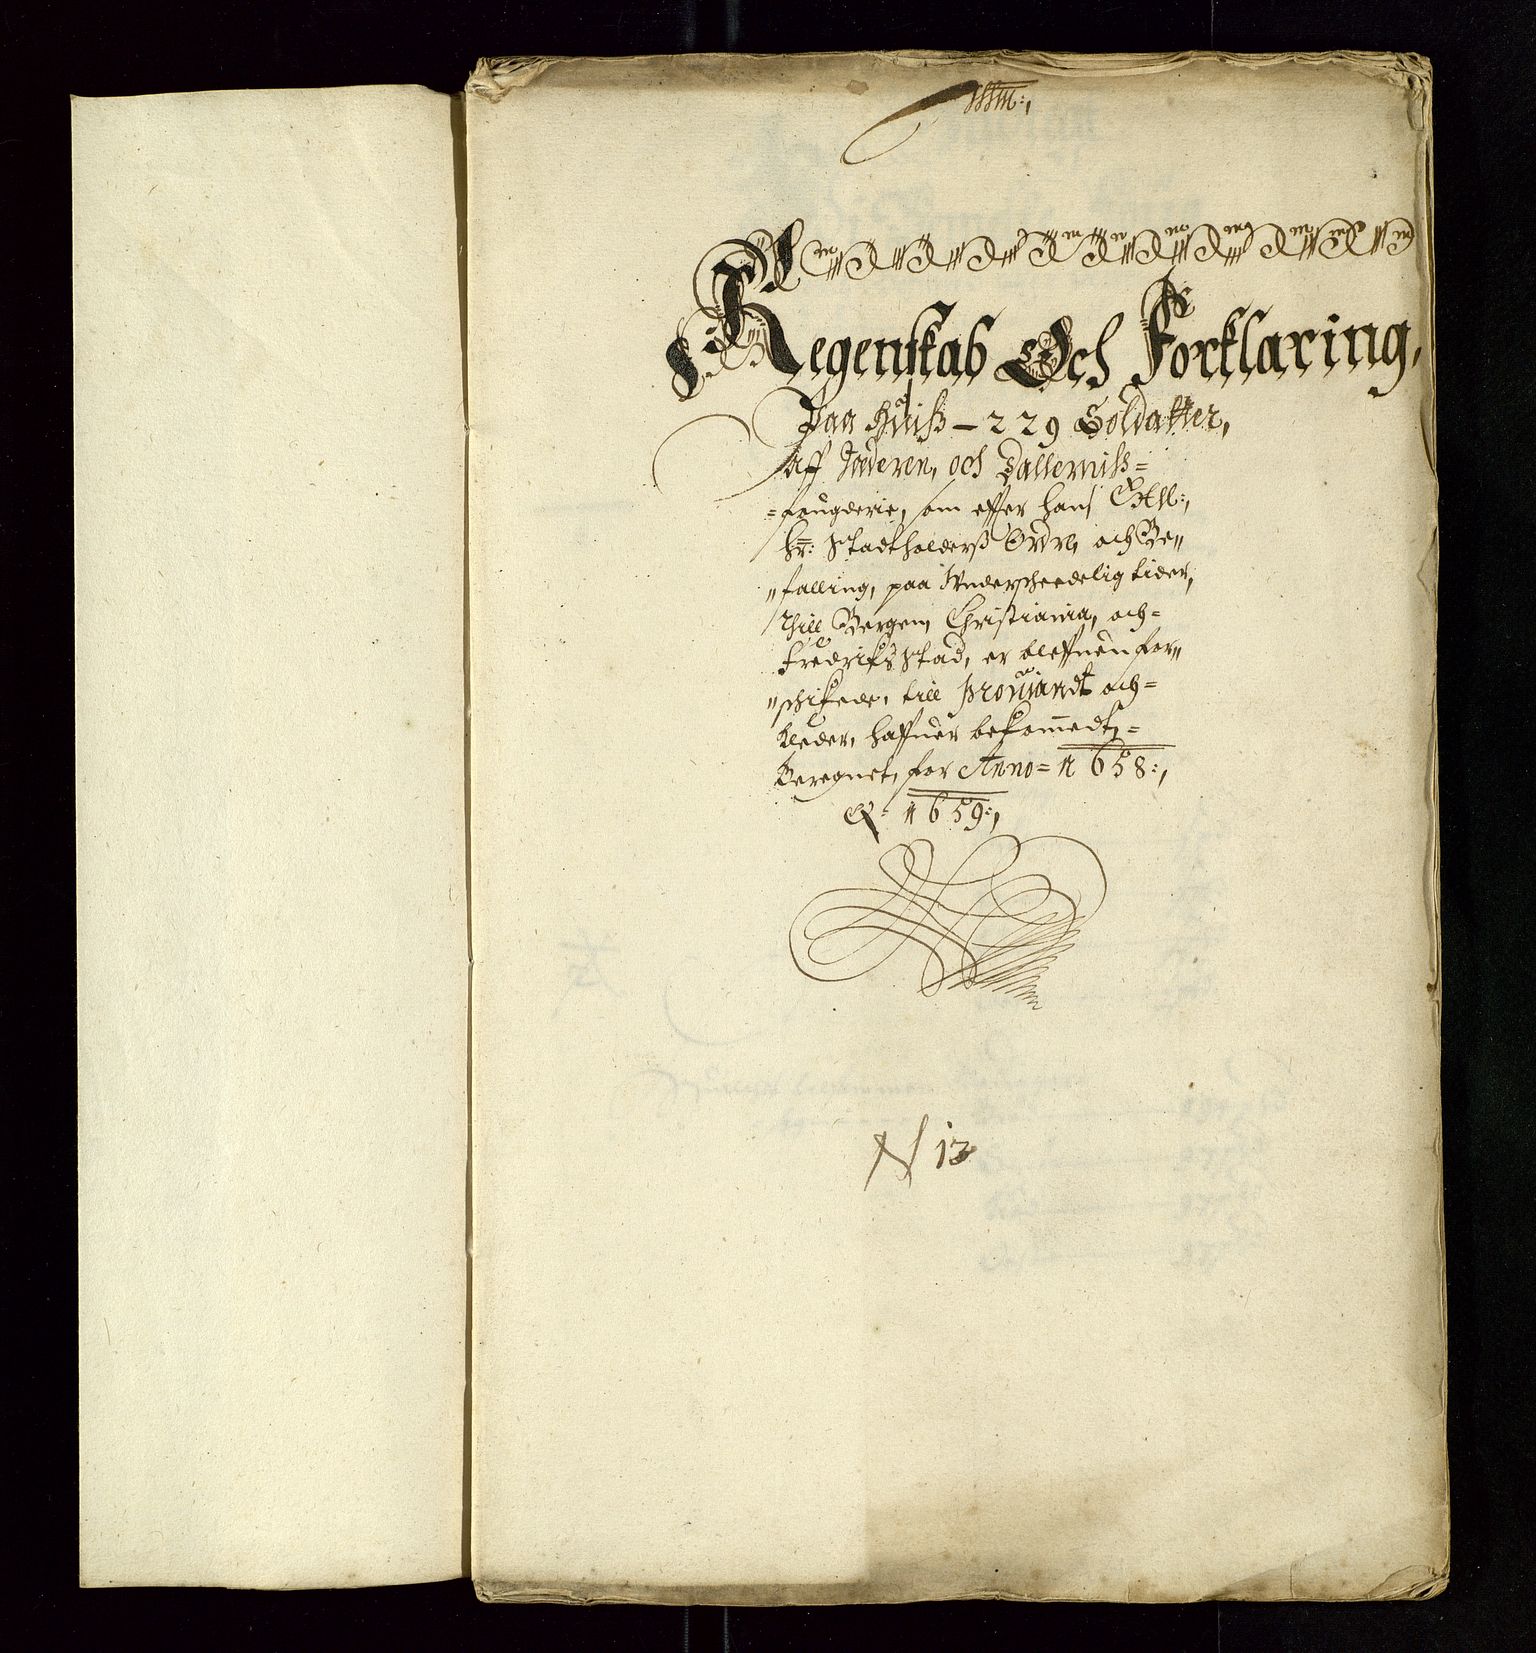 Regenskab Och Forklaring,
Paa huiß – 229 Soldatter,
aff Jæderen, och Dallerniß=
=fougderie, som effter hans Exll:,
Hr: Stadtholderß Ordre, och Be„
„falling, paa Underscheedelig tider,
thill Bergen, Christiania, och=
Fredrikstad, er bleffuen for„
„schikede, till Prouiandt och=
kleder, haffuer bekommedt,=
Beregnet, for Anno= 1658:,
& 1659:,
N 13